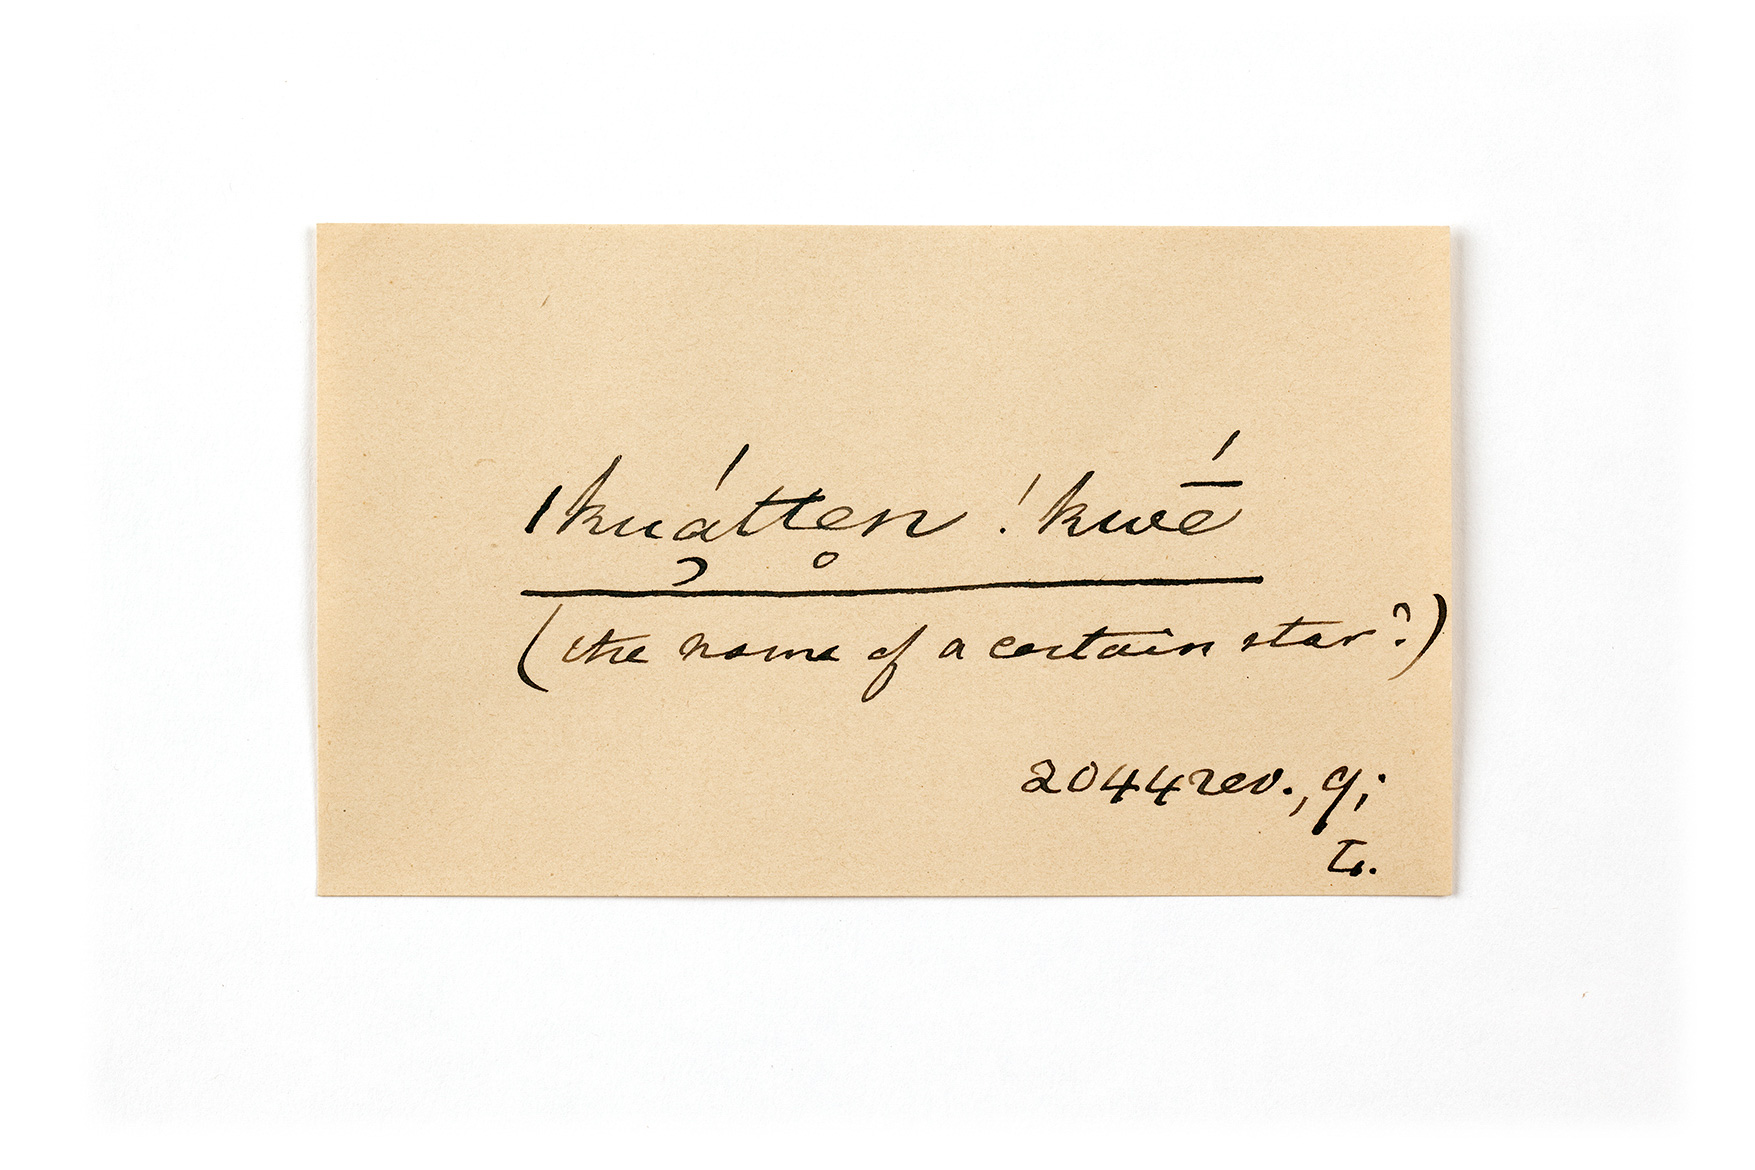 ǀkuá̯tte̥n ǃkwḗ
(the name of a certain star?)
2044 rev., q;
L.